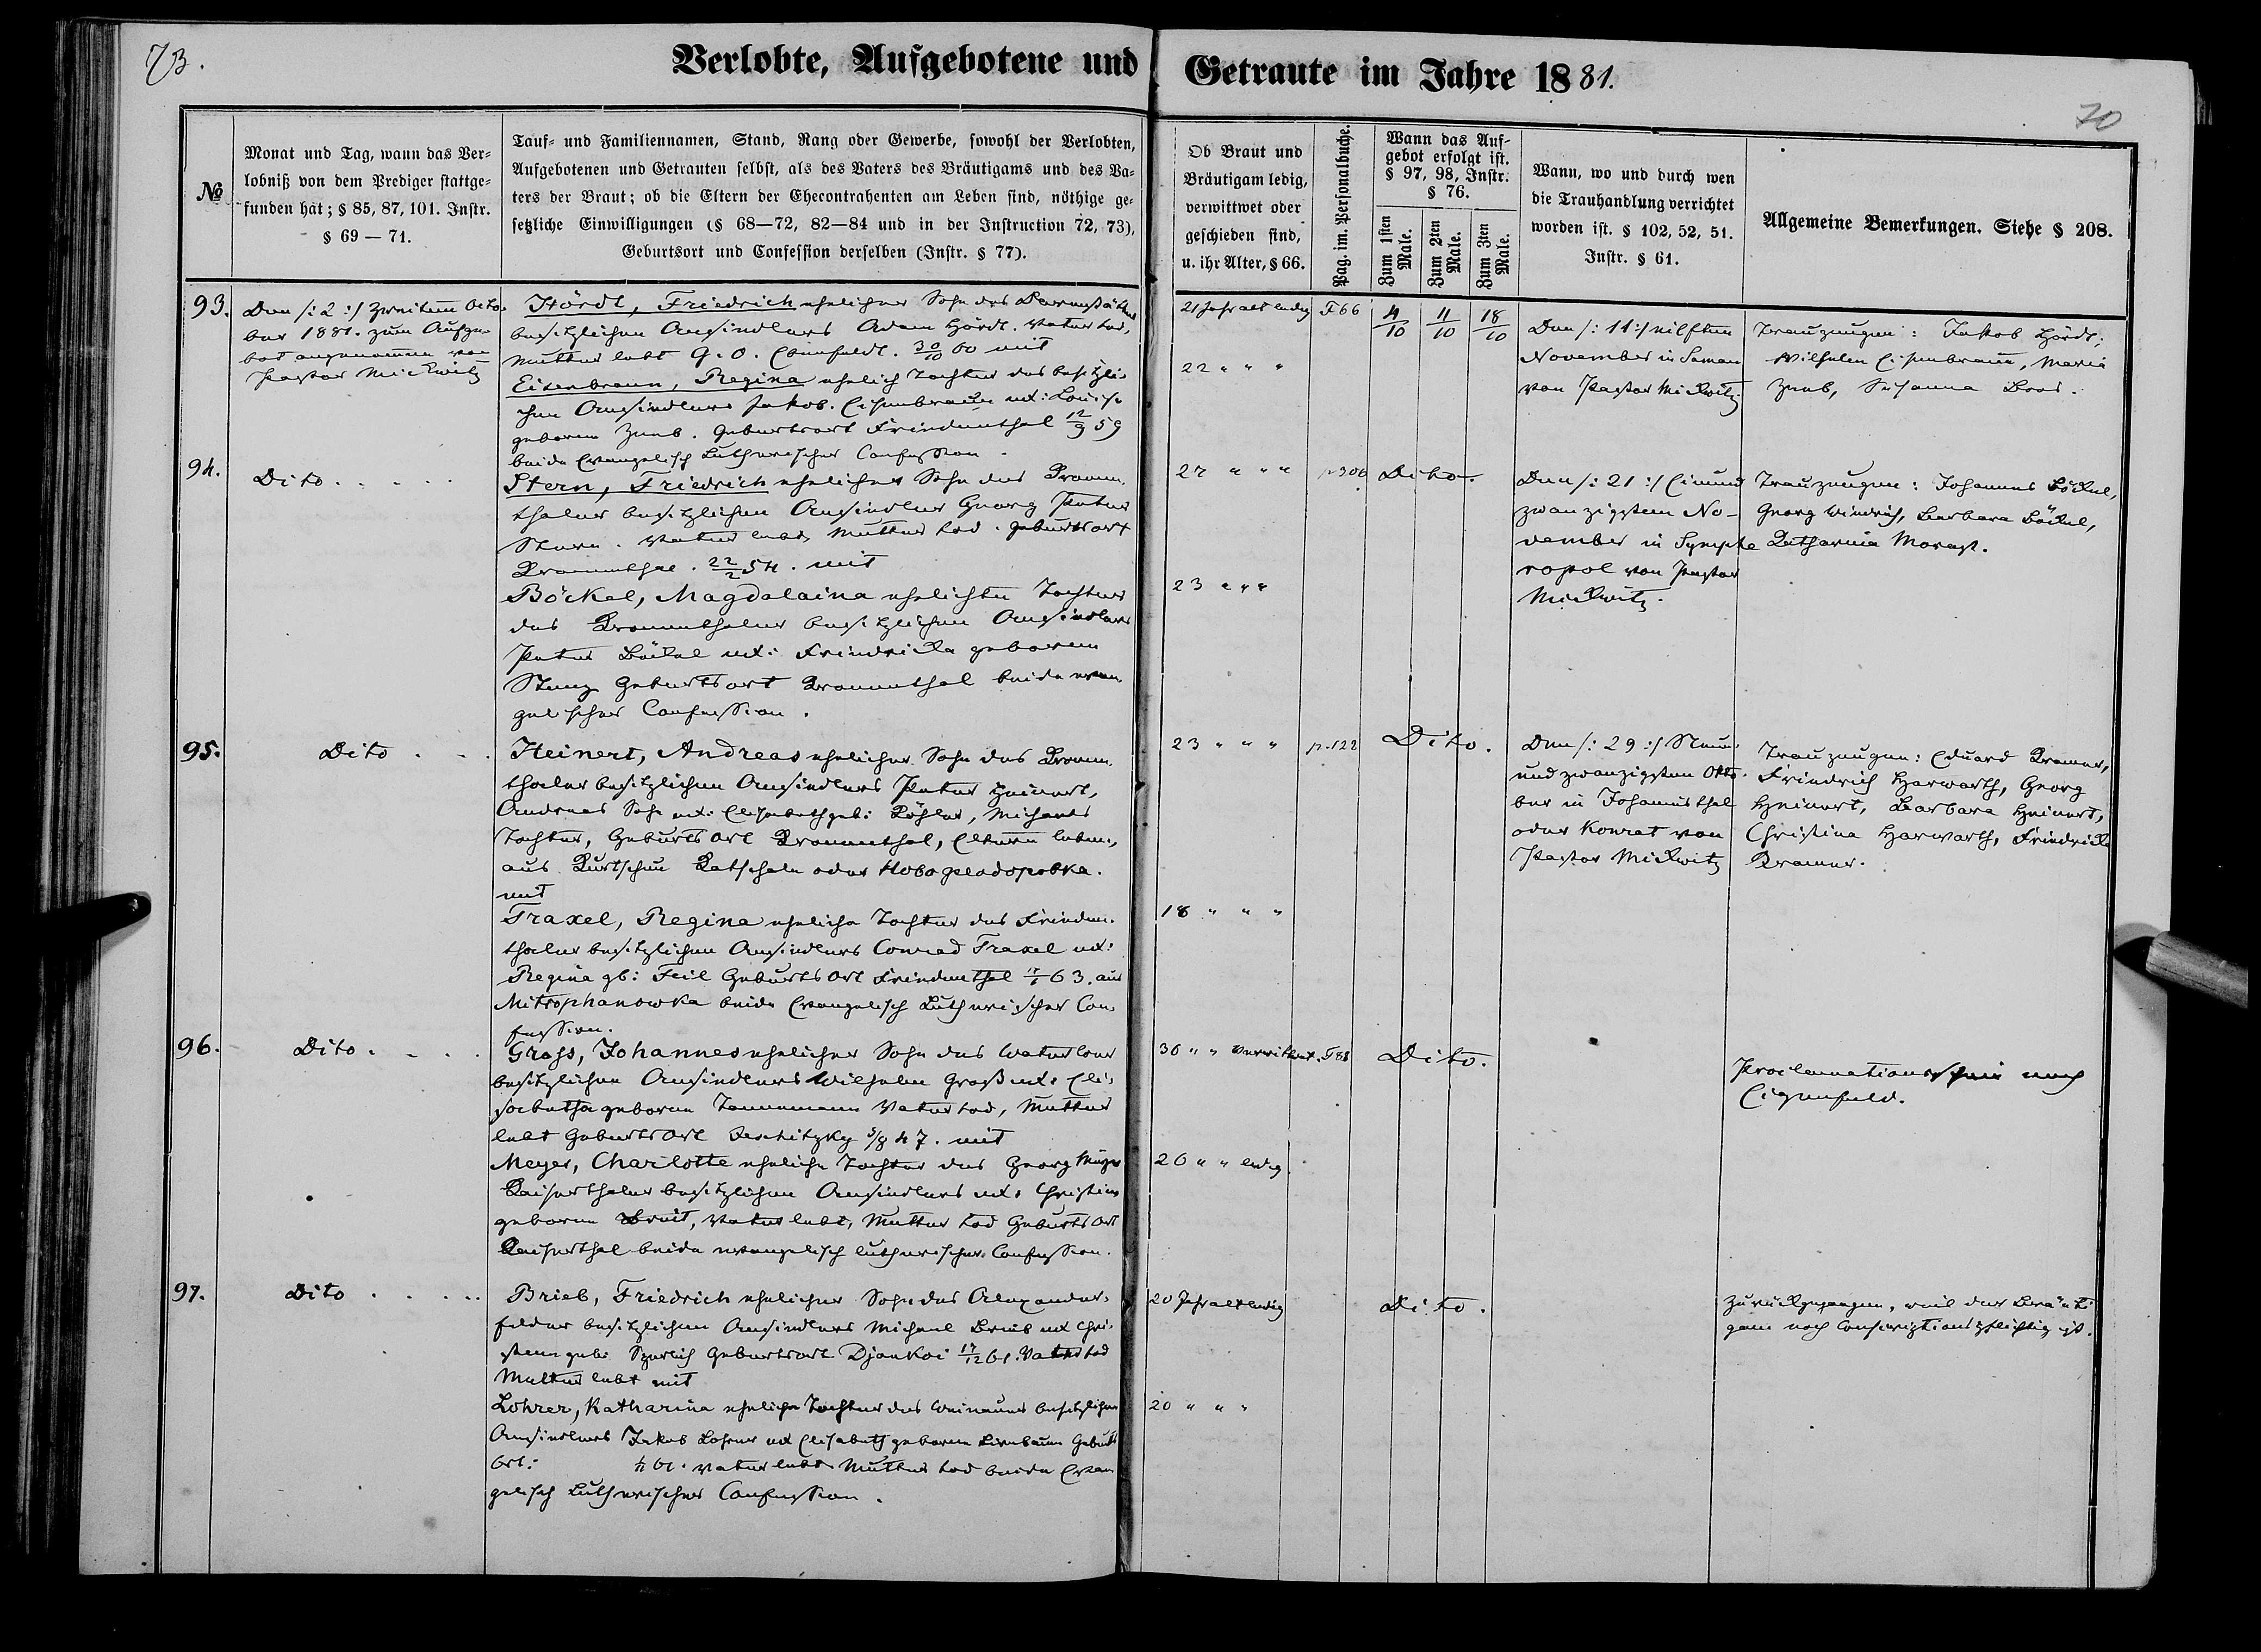 73.
Verlobte, Aufgebotene und Getraute im Jahre 1881.
70
№
Monat und Tag, wann das Ver-
lobniß von dem Prediger stattge-
funden hat; § 85, 87, 101. Instr.
§ 69 — 71.
Tauf- und Familiennamen, Stand, Rang oder Gewerbe, sowohl der Verlobten,
Aufgebotenen und Getrauten selbst, als des Vaters des Bräutigams und des Va-
ters der Braut; ob die Eltern der Ehecontrahenten am Leben sind, nöthige ge-
setzliche Einwilligungen (§ 68—72, 82—84 und in der Instruction 72, 73),
Geburtsort und Confession derselben (Instr. § 77).
Ob Braut und
Bräutigam ledig,
verwittwet oder
geschieden sind,
u. ihr Alter, § 66.
Pag. im. Personalbuche.
Wann das Auf-
gebot erfolgt ist.
§ 97, 98, Instr.
§ 76.
Zum 1sten Male.
Zum 2ten Male.
Zum 3ten Male.
Wann, wo und durch wen
die Trauhandlung verrichtet
worden ist. § 102, 52, 51.
Instr. § 61.
Allgemeine Bemerkungen. Siehe § 208.
93.
Den /: 2 :/ zweiten Octo-
ber 1881. zum Aufge-
bot angenommen von
Pastor Mickwitz
Hördt, Friedrich ehelicher Sohn des
besitzlichen Ansiedlers Adam Hördt. Vater tod,
Mutter lebt G. O. Ebenfeldt. 30/10 60 mit
Eisenbraun, Regina ehelich Tochter des besitzli-
chen Ansiedlers Jakob Eisenbraun ux: Louise
geboren Zeeb. Geburtsort Friedenthal 12/9 59
beide Evangelisch Lutherischer Confession.
21 Jahr alt ledig
22 " " "
F 66
4/10
11/10
18/10
Den /: 11 :/ eilften
November in
von Pastor Mickwitz.
Trauzeugen: Jakob Hördt,
Wilhelm Eisenbraun, Maria
Zeeb, Susanna
94.
Dito . . . . .
Stern, Friedrich ehelicher Sohn des Kronen-
thaler besitzlichen Ansiedlers Georg Peter
Stern. Vater lebt, Mutter tod. Geburtsort
Kronenthal. 22/2 54. mit
Böckel, Magdalaina ehelichen Tochter
des Kronenthaler besitzlichen Ansiedlers
Peter Böckel ux: Friedricka geboren
Stenz Geburtsort Kronenthal beide evan-
gelischer Confession.
27 " " "
23 " " "
p 306
Dito.
Den /: 21 :/ Einund
zwanzigsten No-
vember in Symphe
ropol von Pastor
Mickwitz.
Trauzeugen: Johannes Böckel,
Georg Windrich, Barbara Böckel,
Katharina
95.
Dito . . .
Heinert, Andreas ehelicher Sohn des Kronen-
thaler besitzlichen Ansiedlers Peter Heinert,
Andreas Sohn ux: Elisabeth geb: Köhler, Michaels
Tochter, Geburtsort Kronenthal, Eltern leben,
aus Kurtschen Katschale oder
mit
Traxel, Regina eheliche Tochter des Frieden-
thaler besitzlichen Ansiedlers Conrad Traxel ux:
Regina gb: Feil Geburtsort Friedenthal 63. aus
Mitrophanowka beide Evangelisch Lutherischer Con-
fession.
23 " " "
18 " " "
p. 122
Dito.
Den /: 29 :/ Neun
und zwanzigsten Okto-
ber in Johannisthal
oder Konrat von
Pastor Mickwitz
Trauzeugen: Eduard Kramer,
Friedrich Harwarth, Georg
Heinert, Barbara Heinert,
Christina Harwarth, Friedricke
Kramer.
96.
Dito . . . .
Gross, Johannes ehelicher Sohn des Waterloer
besitzlichen Ansiedlers Wilhelm Groß ux: Eli-
sabetha geboren Tennemann Vater tod, Mutter
lebt Geburtsort 5/8 47. mit
Meyer, Charlotte eheliche Tochter des Georg Meyer
Kaiserthaler besitzlichen Ansiedlers ux: Christine
geboren Vater lebt, Mutter tod Geburtsort
Kaiserthal beide evangelisch lutherischer Confession.
36 " " verwittwet.
26 " " ledig.
F 88
Dito.
Proclamationsschein nach
Eigenfeld.
97.
Dito . . . . .
Brieb, Friedrich ehelicher Sohn des Alexander-
felder besitzlichen Ansiedlers Michael Brieb ux Chri-
stine geb: Geburtsort Djankoi 17/12 61. Vater tod
Mutter lebt mit
Lohrer, Katharina eheliche Tochter des Weinauer besitzlichen
Ansiedlers Jakob Lohrer ux Elisabeth geboren Birnbaum Geburts
Ort: 61. Vater lebt Mutter tod beide Evan-
gelisch Lutherischer Confession.
20 Jahr alt ledig
20 " " "
Dito.
Zurückgegangen, weil der Bräuti-
gam noch Conscriptionspflichtig ist.